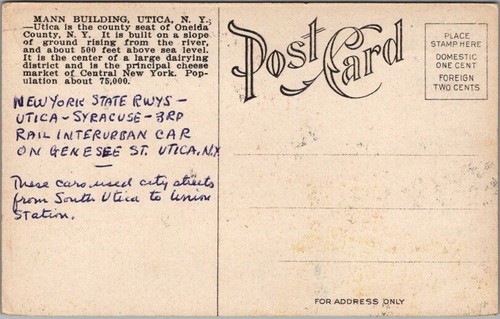 MANN BUILDING, UTICA, N. Y.
—Utica is the county seat of Oneida
County, N. Y. It is built on a slope
of ground rising from the river,
and about 500 feet above sea level.
It is the center of a large dairying
district and is the principal cheese
market of Central New York. Pop-
ulation about 75,000.
NEW YORK STATE RWYS —
UTICA - SYRACUSE - 3RD
RAIL INTERURBAN CAR
ON GENESEE ST. UTICA, N.Y.
—
These cars used city streets
from South Utica to Union
Station.
Post Card
PLACE
STAMP HERE
DOMESTIC
ONE CENT
FOREIGN
TWO CENTS
FOR ADDRESS ONLY